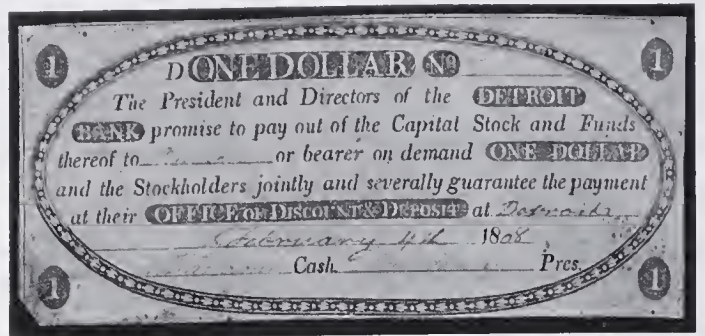 1 1
D ONE DOLLAR No
The President and Directors of the DETROIT
BANK promise to pay out of the Capital Stock and Funds
thereof to or bearer on demand ONE DOLLAR
and the Stockholders jointly and severally guarantee the payment
at their OFFICE OF DISCOUNT & DEPOSIT at Detroit
February 4th 1808
Cash. Pres.
1 1